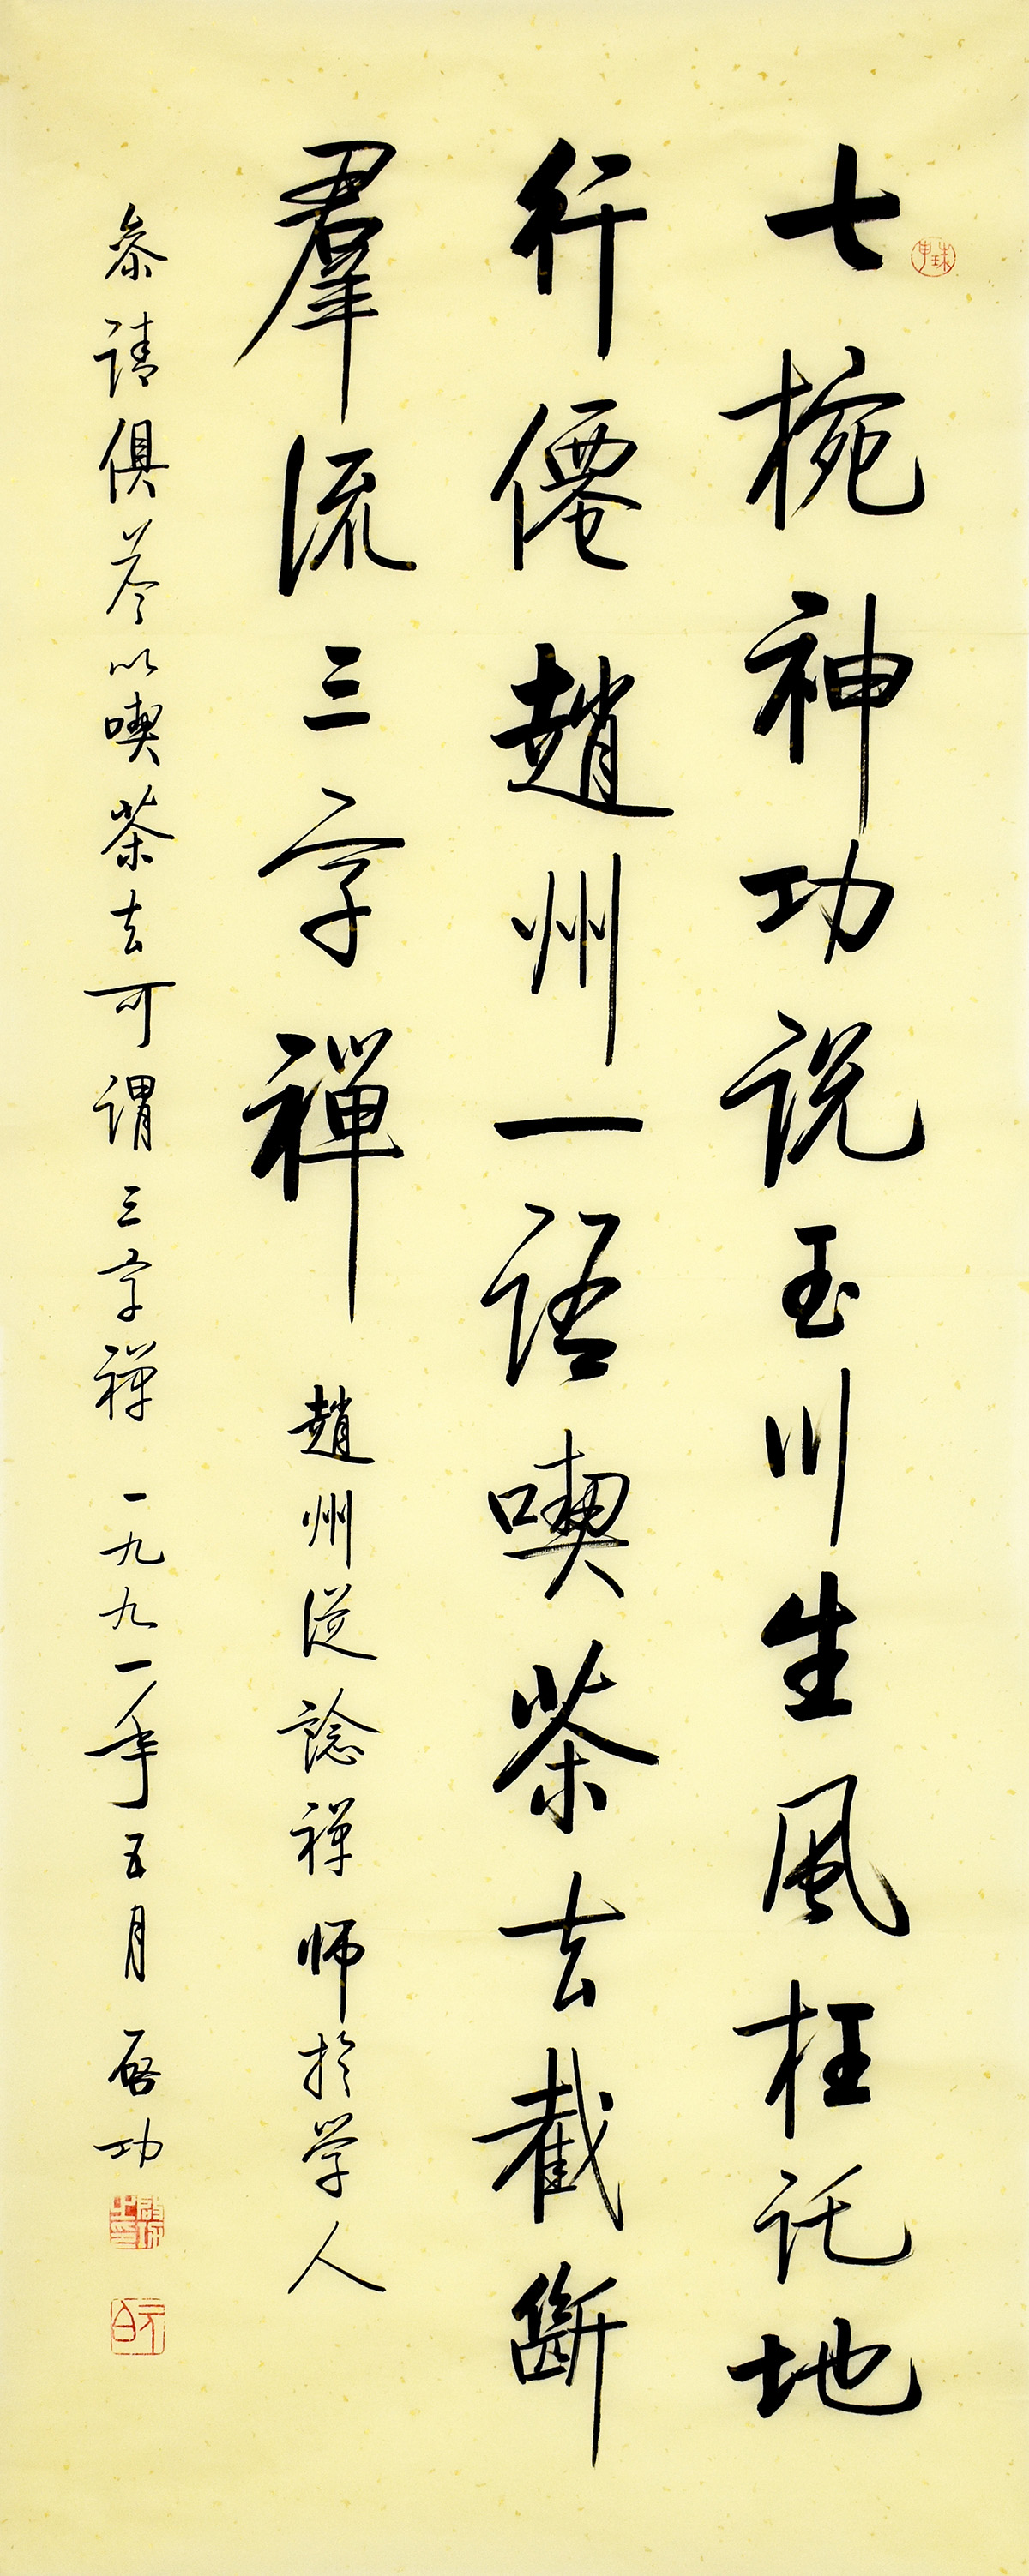 七椀神功説玉川生風枉託地
行僊趙州一語喫茶去截斷
羣流三字禪
趙州從諗禪師於學人
叅請俱荅以喫茶去可謂三字禪 一九九一年五月 啓功